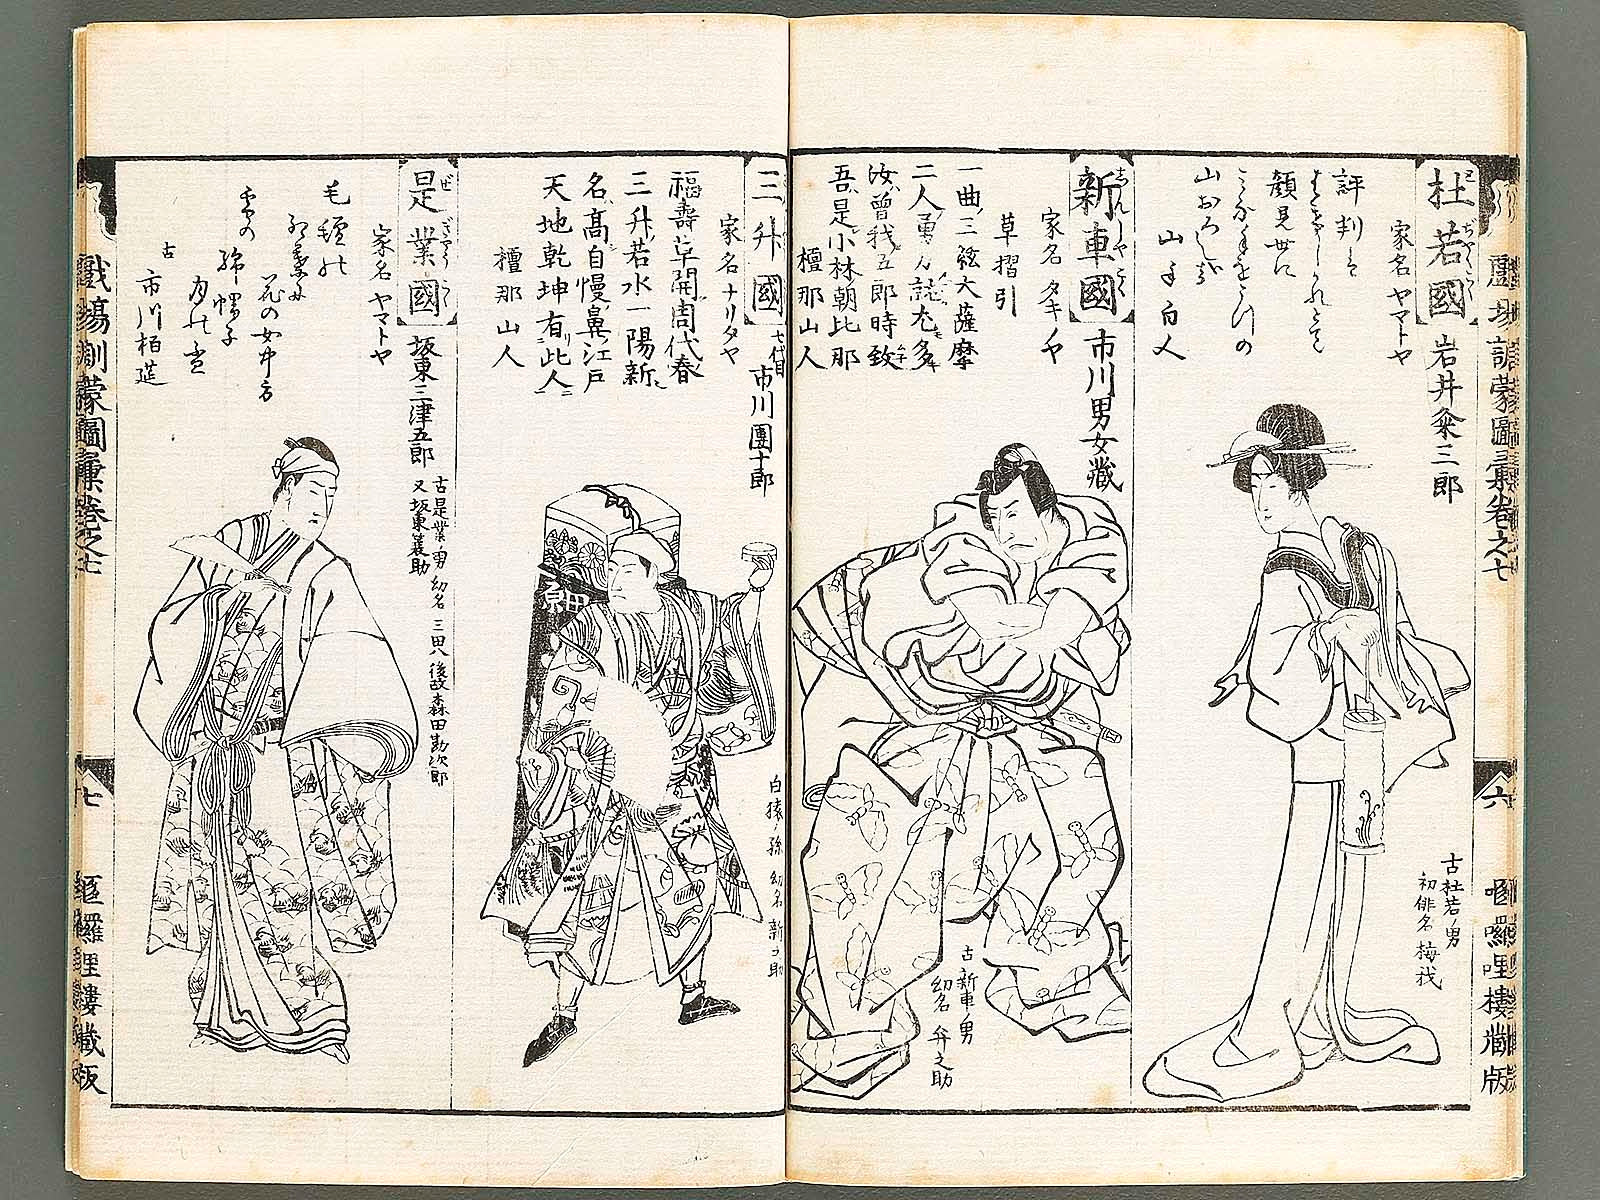 戲場訓蒙圖彙卷之七
六
哩囉哩樓藏版
杜若國
岩井粂三郎
家名 ヤマトヤ
評判は
顔見世に
山おろし
古杜若ノ男
初俳名 梅我
新車國
市川男女藏
家名 タキノヤ
草摺引
一曲三弦大薩摩
二人勇力誌尤多
汝曾我五郎時致
吾是小林朝比那
檀那山人
古新車ノ男
幼名 弁之助
三升國
七代目 市川團十郎
家名 ナリタヤ
福壽草開周代春
三升若水一陽新
名高自慢鼻江戸
天地乾坤有此人
檀那山人
白猿ノ孫 幼名 新之助
是業國
坂東三津五郎
古是業ノ男 幼名 三田八 後改森田勘次郎
又坂東簑助
家名 ヤマトヤ
花の女中方
綿帽子
古 市川栢莚
戲場訓蒙圖彙卷之七
七
哩囉哩樓藏版